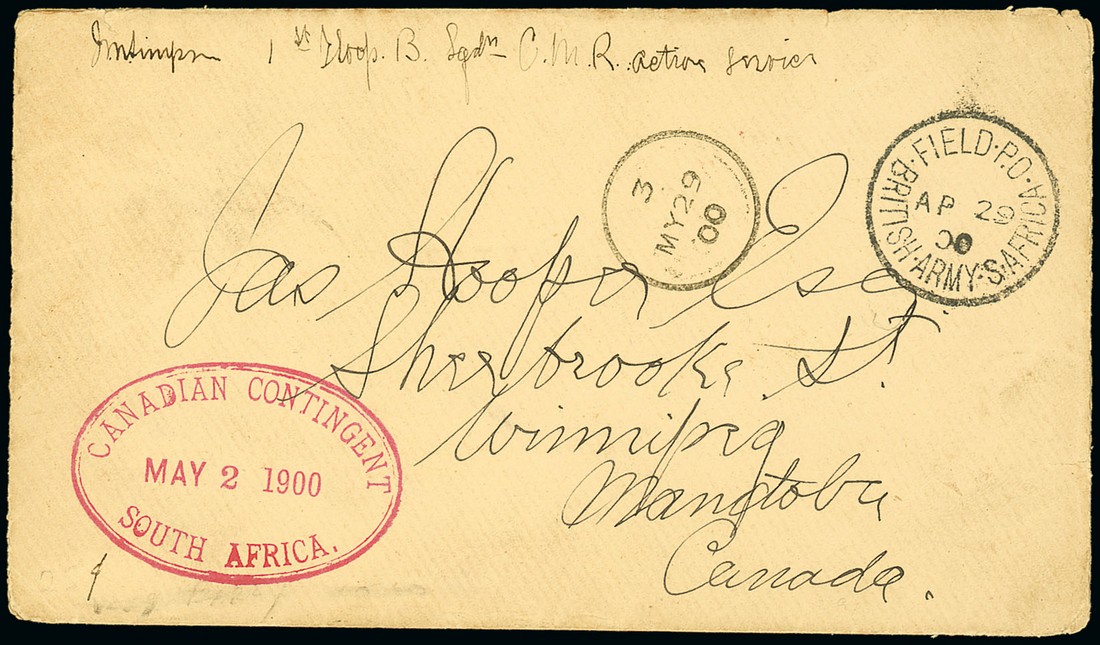 1st Troop. B. Sqdn C.M.R. active service
3
MY 29
00
·FIELD·P.O·
BRITISH·ARMY·S·AFRICA
AP 29
00
Jas Hooper Esq
Sherbrooke St.
Winnipeg
Manitoba
Canada.
CANADIAN CONTINGENT
MAY 2 1900
SOUTH AFRICA.